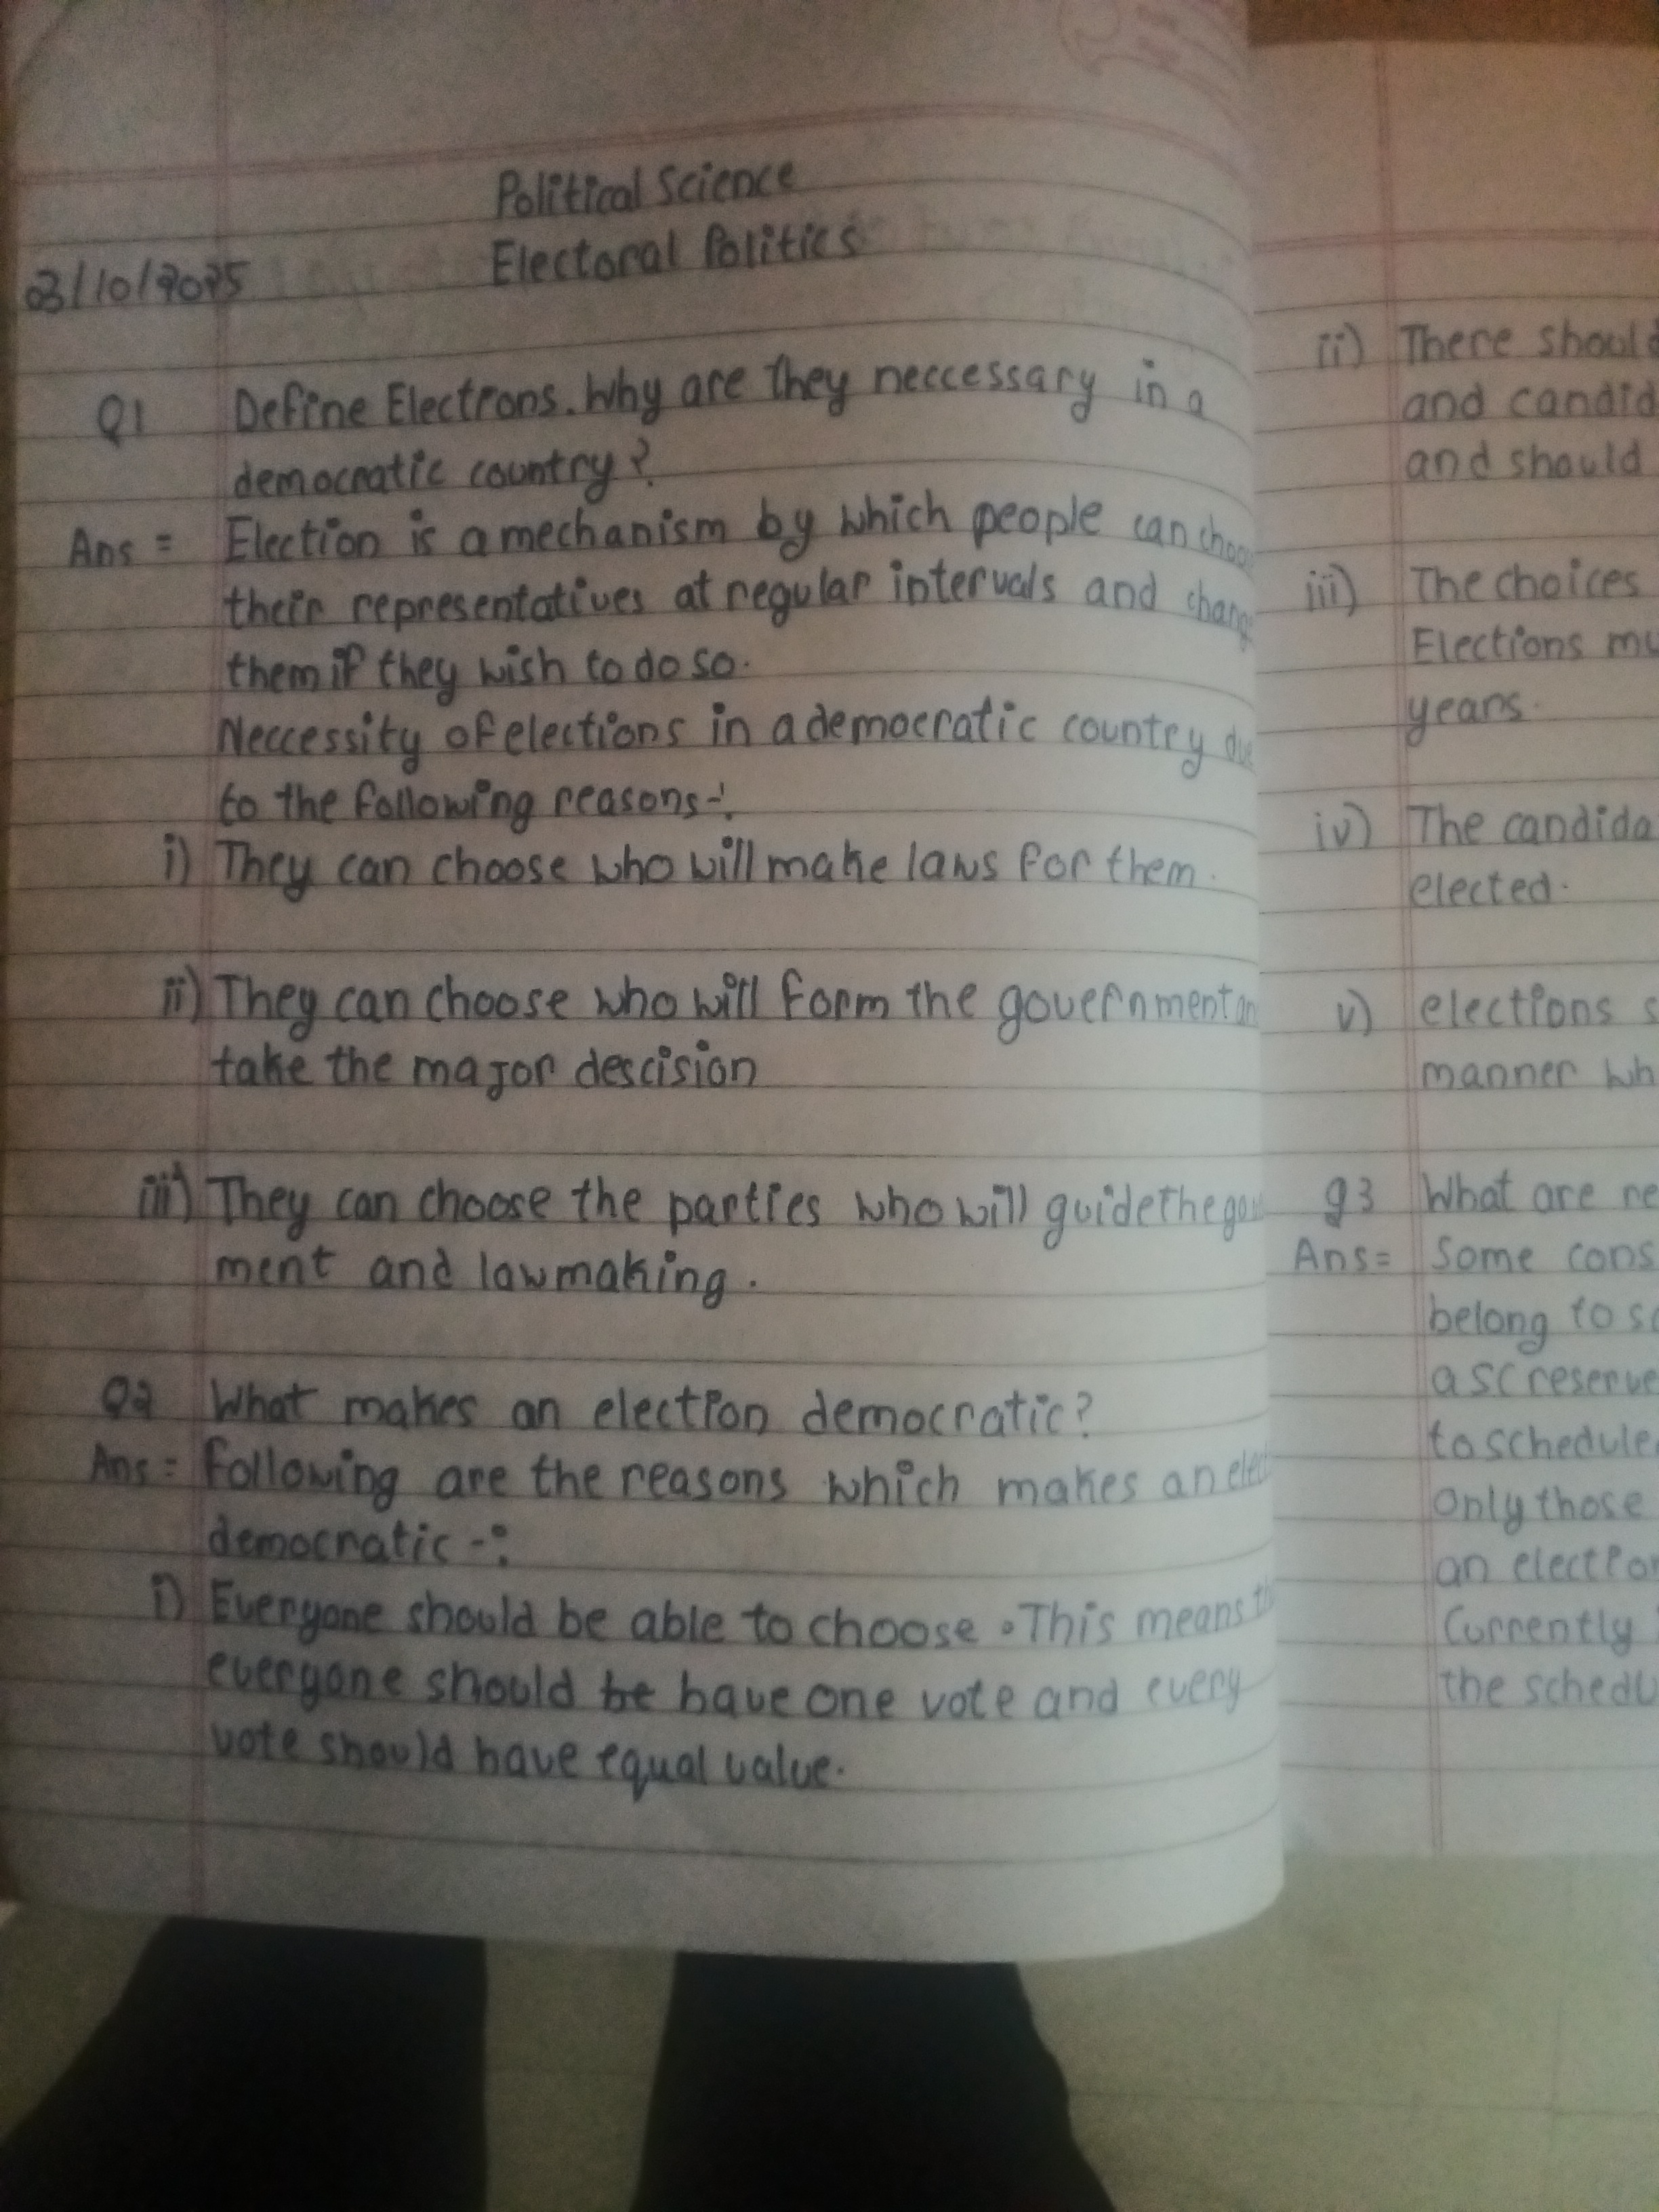 Political Science
Electoral Politics
03/10/2025
Q1 Define Elections. Why are they neccessary in a
democratic country?
Ans = Election is a mechanism by which people can
their representatives at regular intervals and
them if they wish to do so.
Neccessity of elections in a democratic country due
to the following reasons-:
i) They can choose who will make laws for them.
ii) They can choose who will form the government
take the major descision
iii) They can choose the parties who will guide the
ment and lawmaking.
Q2 What makes an election democratic?
Ans = Following are the reasons which makes an
democratic -:
i) Everyone should be able to choose. This means
everyone should be have one vote and every
vote should have equal value.
ii) There should
and candid
and should
iii) The choices
Elections mu
years.
iv) The candida
elected.
v) elections s
manner wh
Q3 What are re
Ans = Some cons
belong to sc
a SC reserve
to schedule
Only those
an election
Currently
the schedu